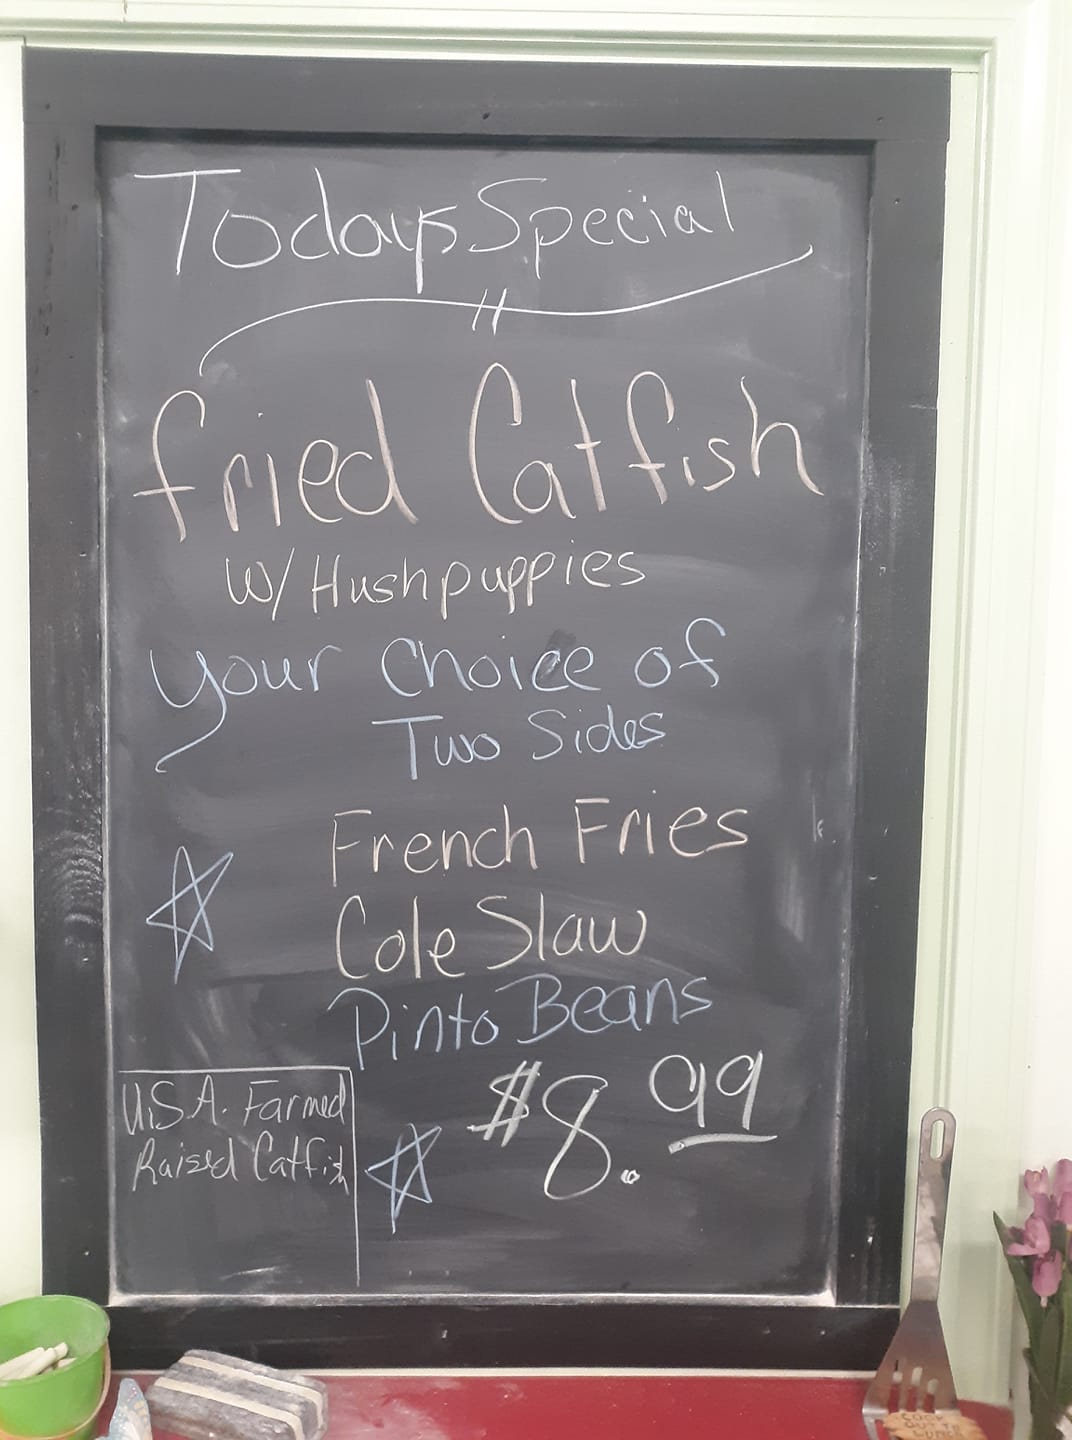 Todays Special
fried Catfish
W/Hushpuppies
your Choice of
Two Sides
French Fries
Cole Slaw
Pinto Beans
$8.99
U.S.A. Farmed
Raised Catfish